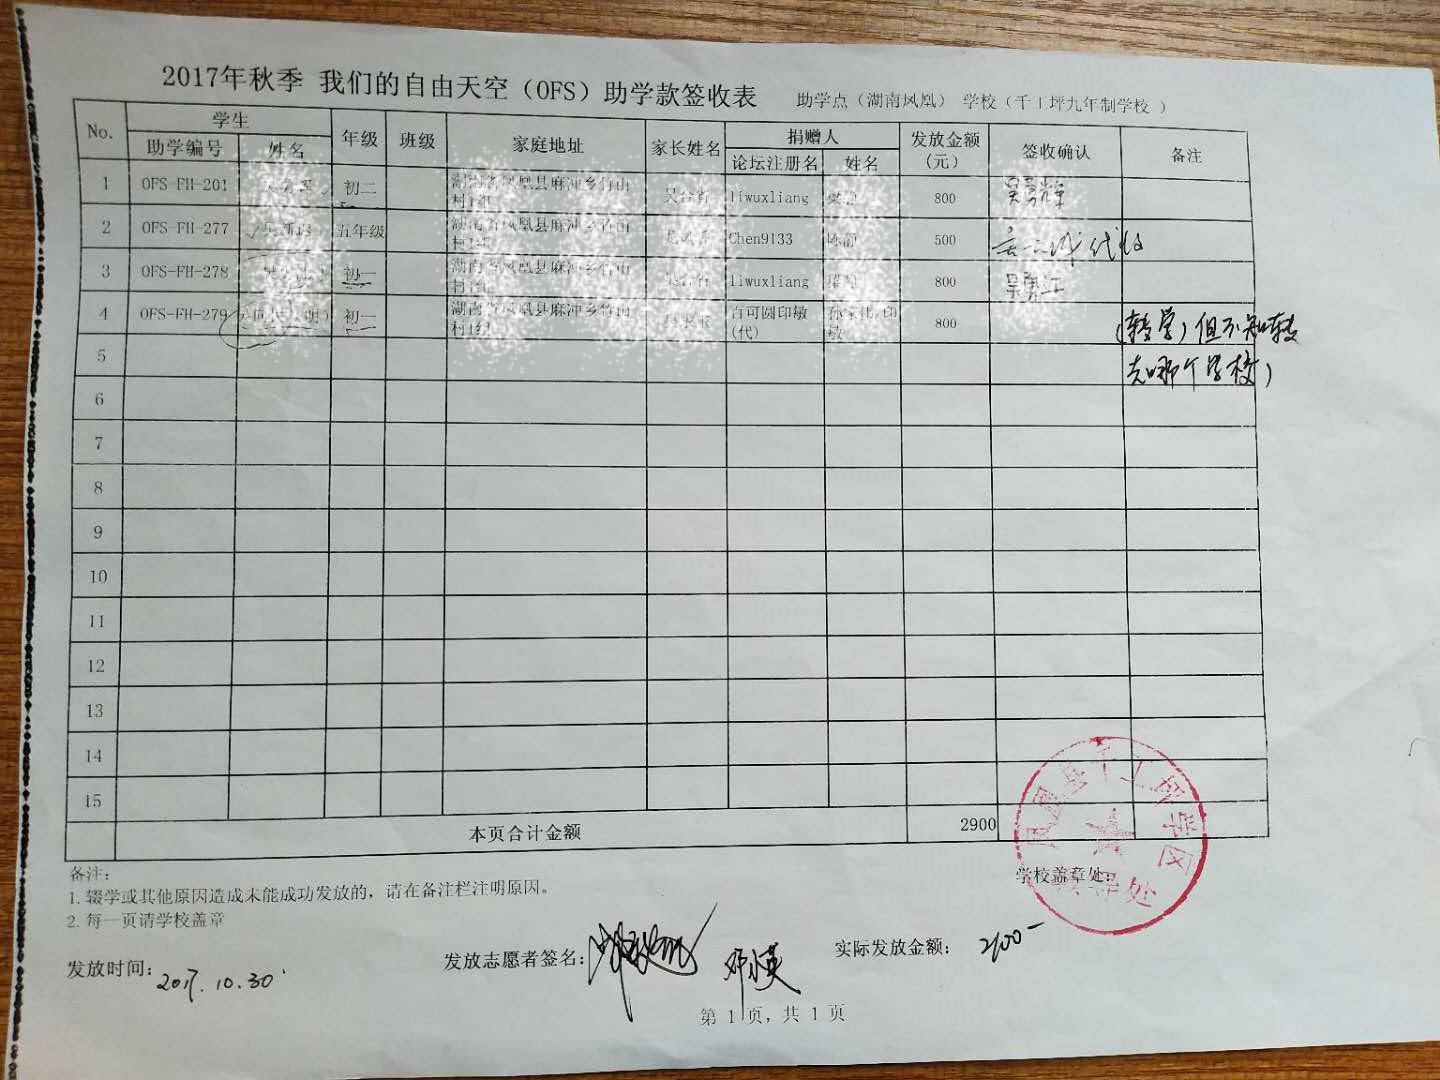 2017年秋季 我们的自由天空（OFS）助学款签收表 助学点（湖南凤凰） 学校（千工坪九年制学校 ）
No. 学生 年级 班级 家庭地址 家长姓名 捐赠人 发放金额（元） 签收确认 备注
助学编号 姓名 论坛注册名 姓名
1 OFS-FH-201 初二 湖南省凤凰县麻冲乡竹山村1组 liwuxliang 800
2 OFS-FH-277 五年级 湖南省凤凰县麻冲乡竹山村1组 Chen9133 500 代收
3 OFS-FH-278 初一 湖南省凤凰县麻冲乡竹山村1组 liwuxliang 800
4 OFS-FH-279 初一 湖南省凤凰县麻冲乡竹山村1组 百可圆印敏(代) 800 (转学)但不知转
5 去哪个学校)
6
7
8
9
10
11
12
13
14
15
本页合计金额 2900
凤凰县千工坪学区
学校盖章处:
备注:
1.辍学或其他原因造成未能成功发放的，请在备注栏注明原因。
2.每一页请学校盖章
发放时间: 2017.10.30 发放志愿者签名: 实际发放金额: 2100-
第 1 页，共 1 页